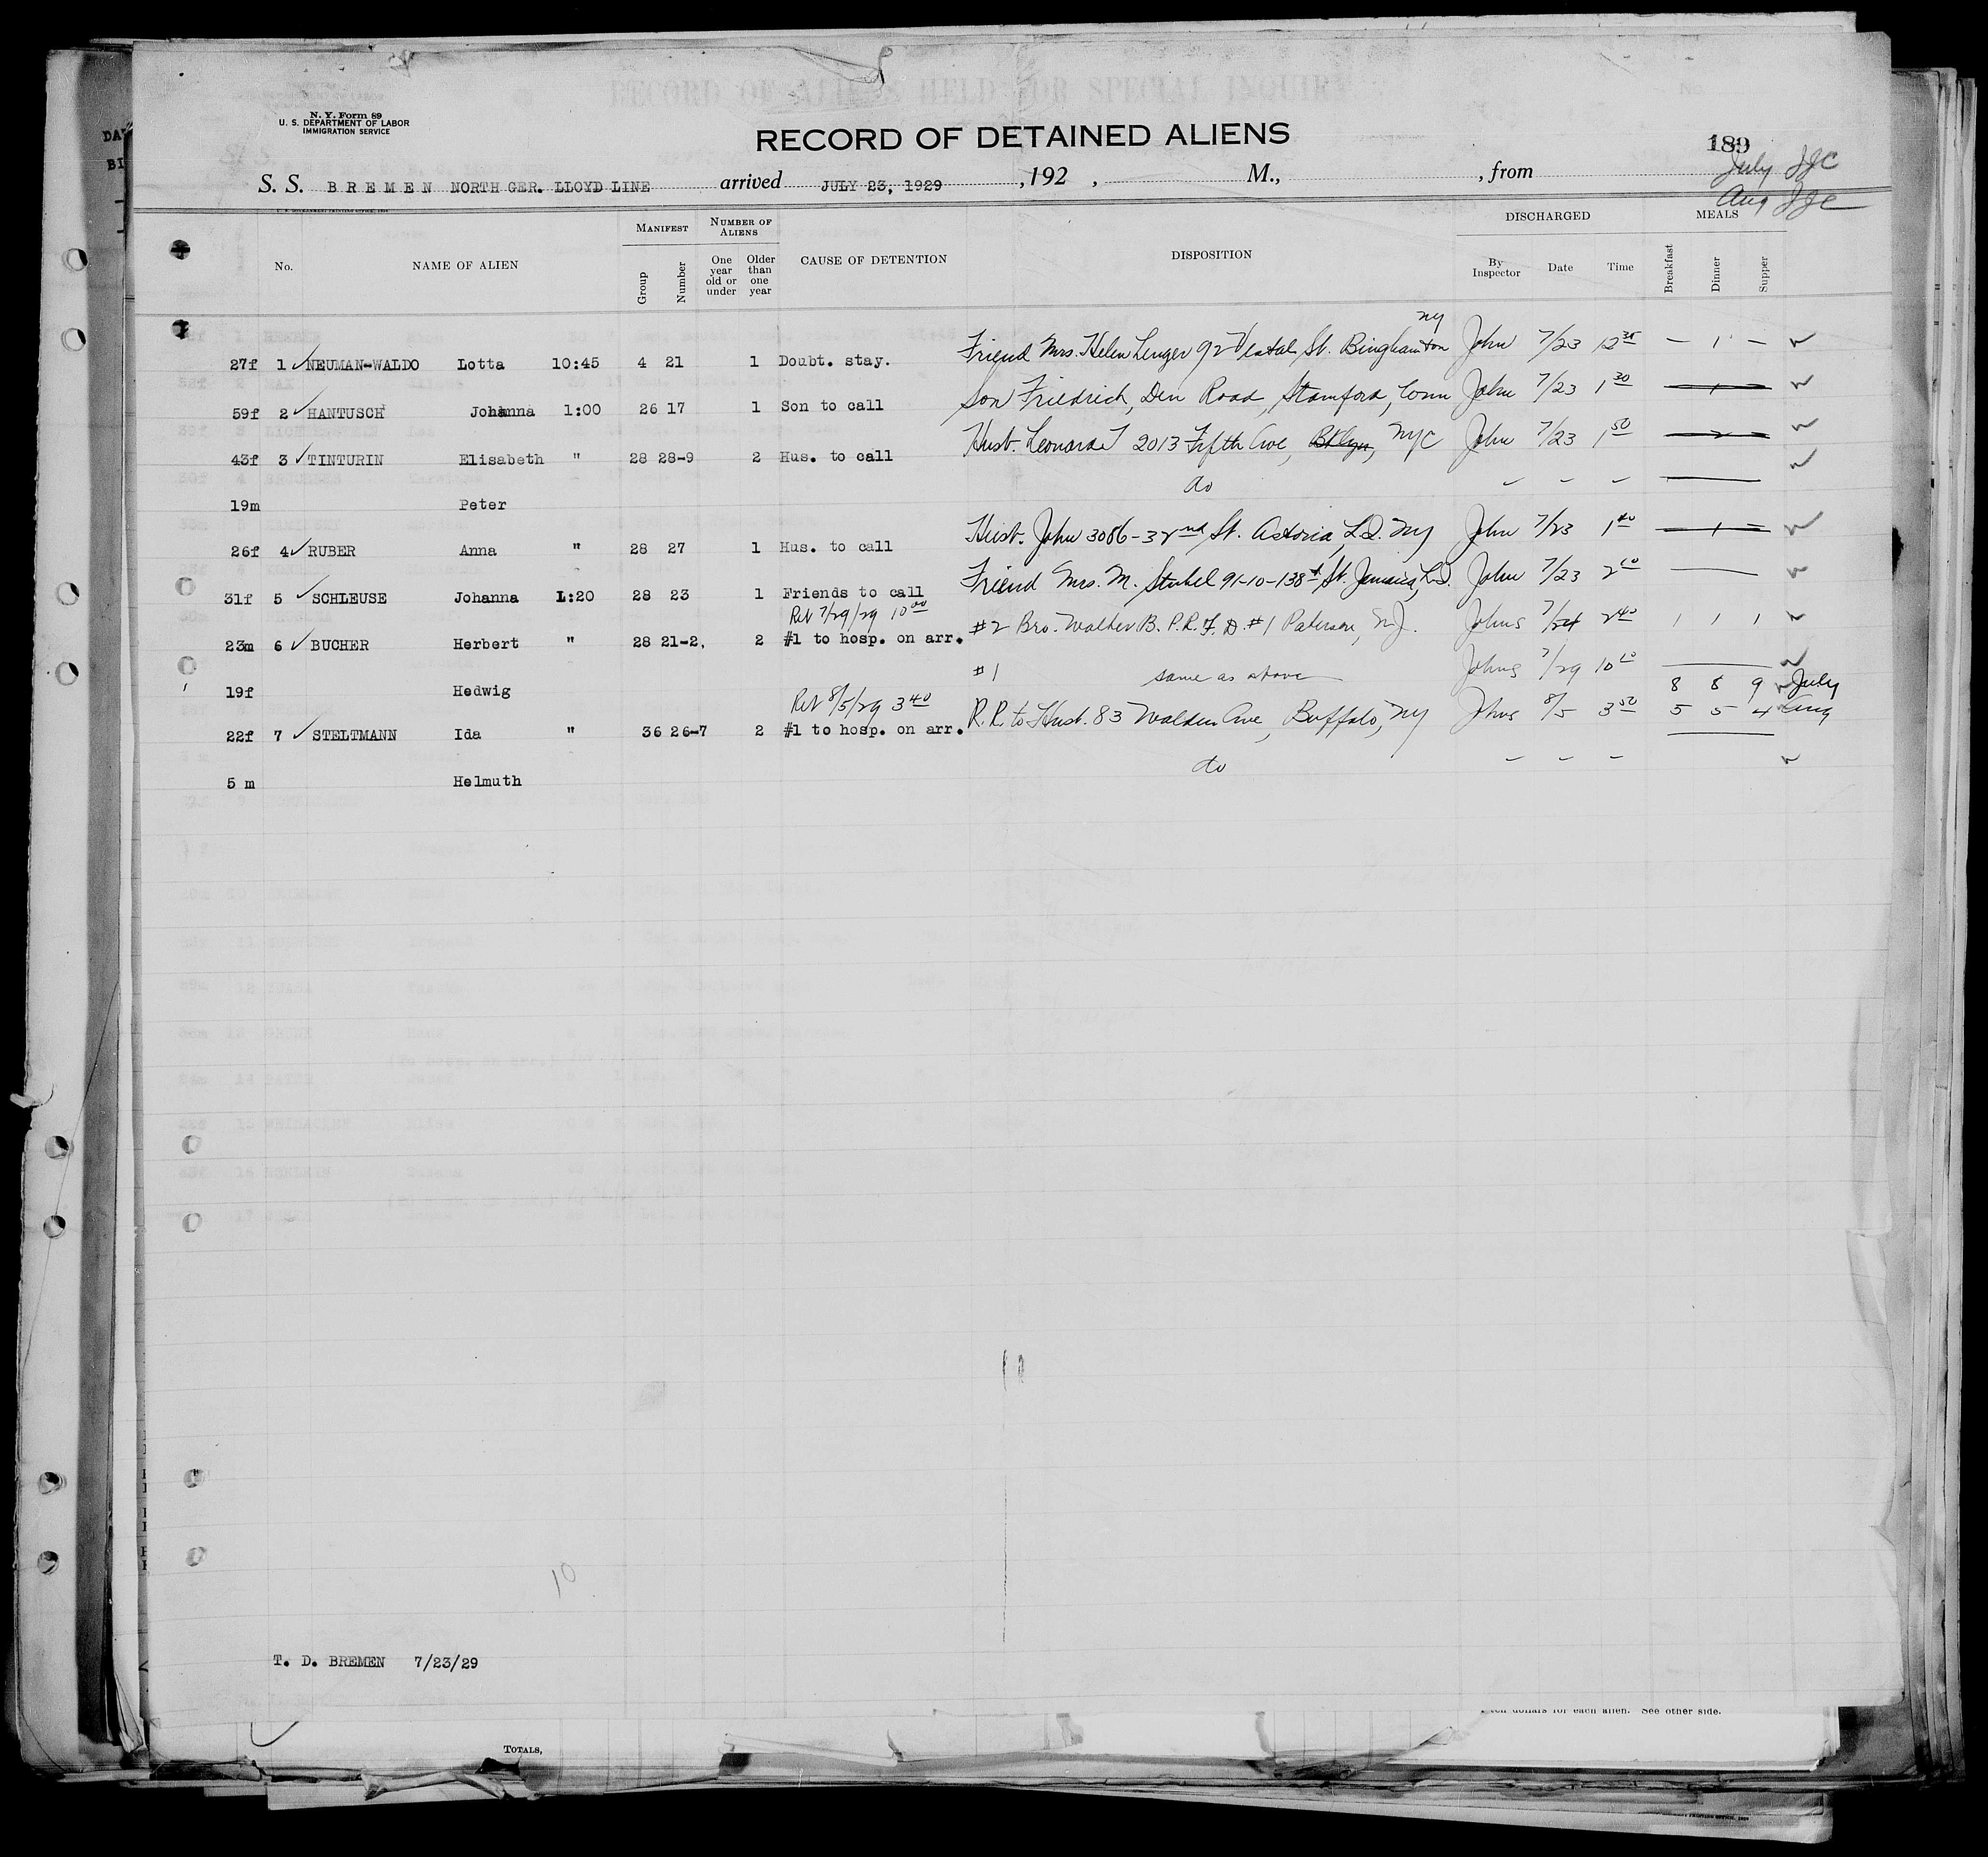 N. Y. Form 89
U. S. DEPARTMENT OF LABOR
IMMIGRATION SERVICE
RECORD OF ALIENS HELD FOR SPECIAL INQUIRY
RECORD OF DETAINED ALIENS
189
July JJC
Aug JJC
S. S. BREMEN NORTH GER. LLOYD LINE arrived JULY 23, 1929 , 192 , M., , from
No. NAME OF ALIEN MANIFEST Group Number NUMBER OF ALIENS One year old or under Older than one year CAUSE OF DETENTION DISPOSITION DISCHARGED By Inspector Date Time MEALS Breakfast Dinner Supper
27f 1 ✓ NEUMAN-WALDO Lotta 10:45 4 21 1 Doubt. stay. Friend Mrs. Helen Lenger 92 Vestal St. Binghamton NY John 7/23 12 35 — 1 —
59f 2 ✓ HANTUSCH Johanna 1:00 26 17 1 Son to call Son Friedrich, Den Road, Stamford, Conn John 7/23 1 30 — 1 —
43f 3 ✓ TINTURIN Elisabeth " 28 28-9 2 Hus. to call Husb. Leonard T 2013 Fifth Ave, Bklyn, NYC John 7/23 1 50 — 2 —
19m Peter do - - -
26f 4 ✓ RUBER Anna " 28 27 1 Hus. to call Husb. John 3086-32nd St. Astoria, L.I. NY John 7/23 1 40 — 1 —
31f 5 ✓ SCHLEUSE Johanna 1:20 28 23 1 Friends to call Friend Mrs. M. Stubel 91-10-138 St. Jamaica, L.I. John 7/23 2 10
Ret 7/29/29 10 00
23m 6 ✓ BUCHER Herbert " 28 21-2. 2 #1 to hosp. on arr. #2 Bro. Walther B. P. R.F.D. #1 Paterson, N.J. Johns 7/24 2 40 1 1 1
19f Hedwig #1 same as above Johns 7/29 10 10
8 8 9 July
Ret 8/5/29 3 40
22f 7 ✓ STELTMANN Ida " 36 26-7 2 #1 to hosp. on arr. R.R. to Husb. 83 Walden Ave, Buffalo, NY Johns 8/5 3 50 5 5 4 Aug
5 m Helmuth do - - -
10
T. D. BREMEN 7/23/29
ten dollars for each alien. See other side.
TOTALS,